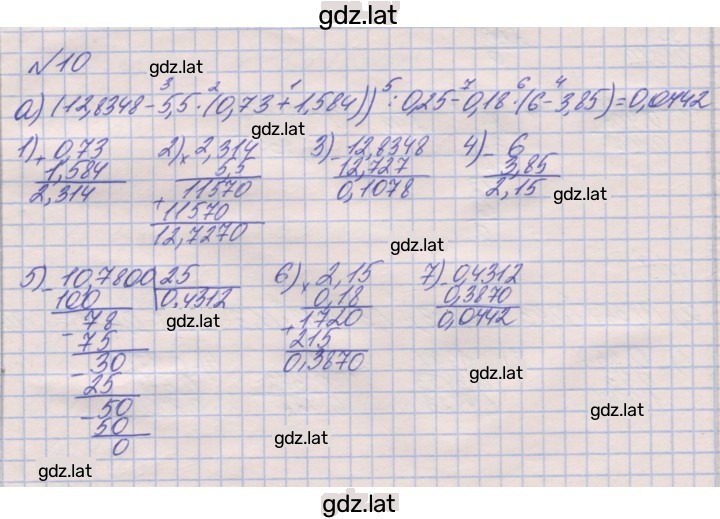 gdz.lat
№10
gdz.lat
а) (12,8348 - 5,5 · (0,73 + 1,584)) : 0,25 - 0,18 · (6 - 3,85) = 0,0442
3 2 1 5 7 6 4
gdz.lat
1) + 0,73
1,584
2,314
2) × 2,314
5,5
11570
+ 11570
12,7270
3) - 12,8348
12,727
0,1078
4) - 6
3,85
2,15
gdz.lat
gdz.lat
5) - 10,7800 25
100 0,4312
- 78
75
- 30
25
- 50
50
0
gdz.lat
6) × 2,15
0,18
+ 1720
215
0,3870
7) - 0,4312
0,3870
0,0442
gdz.lat
gdz.lat
gdz.lat
gdz.lat
gdz.lat